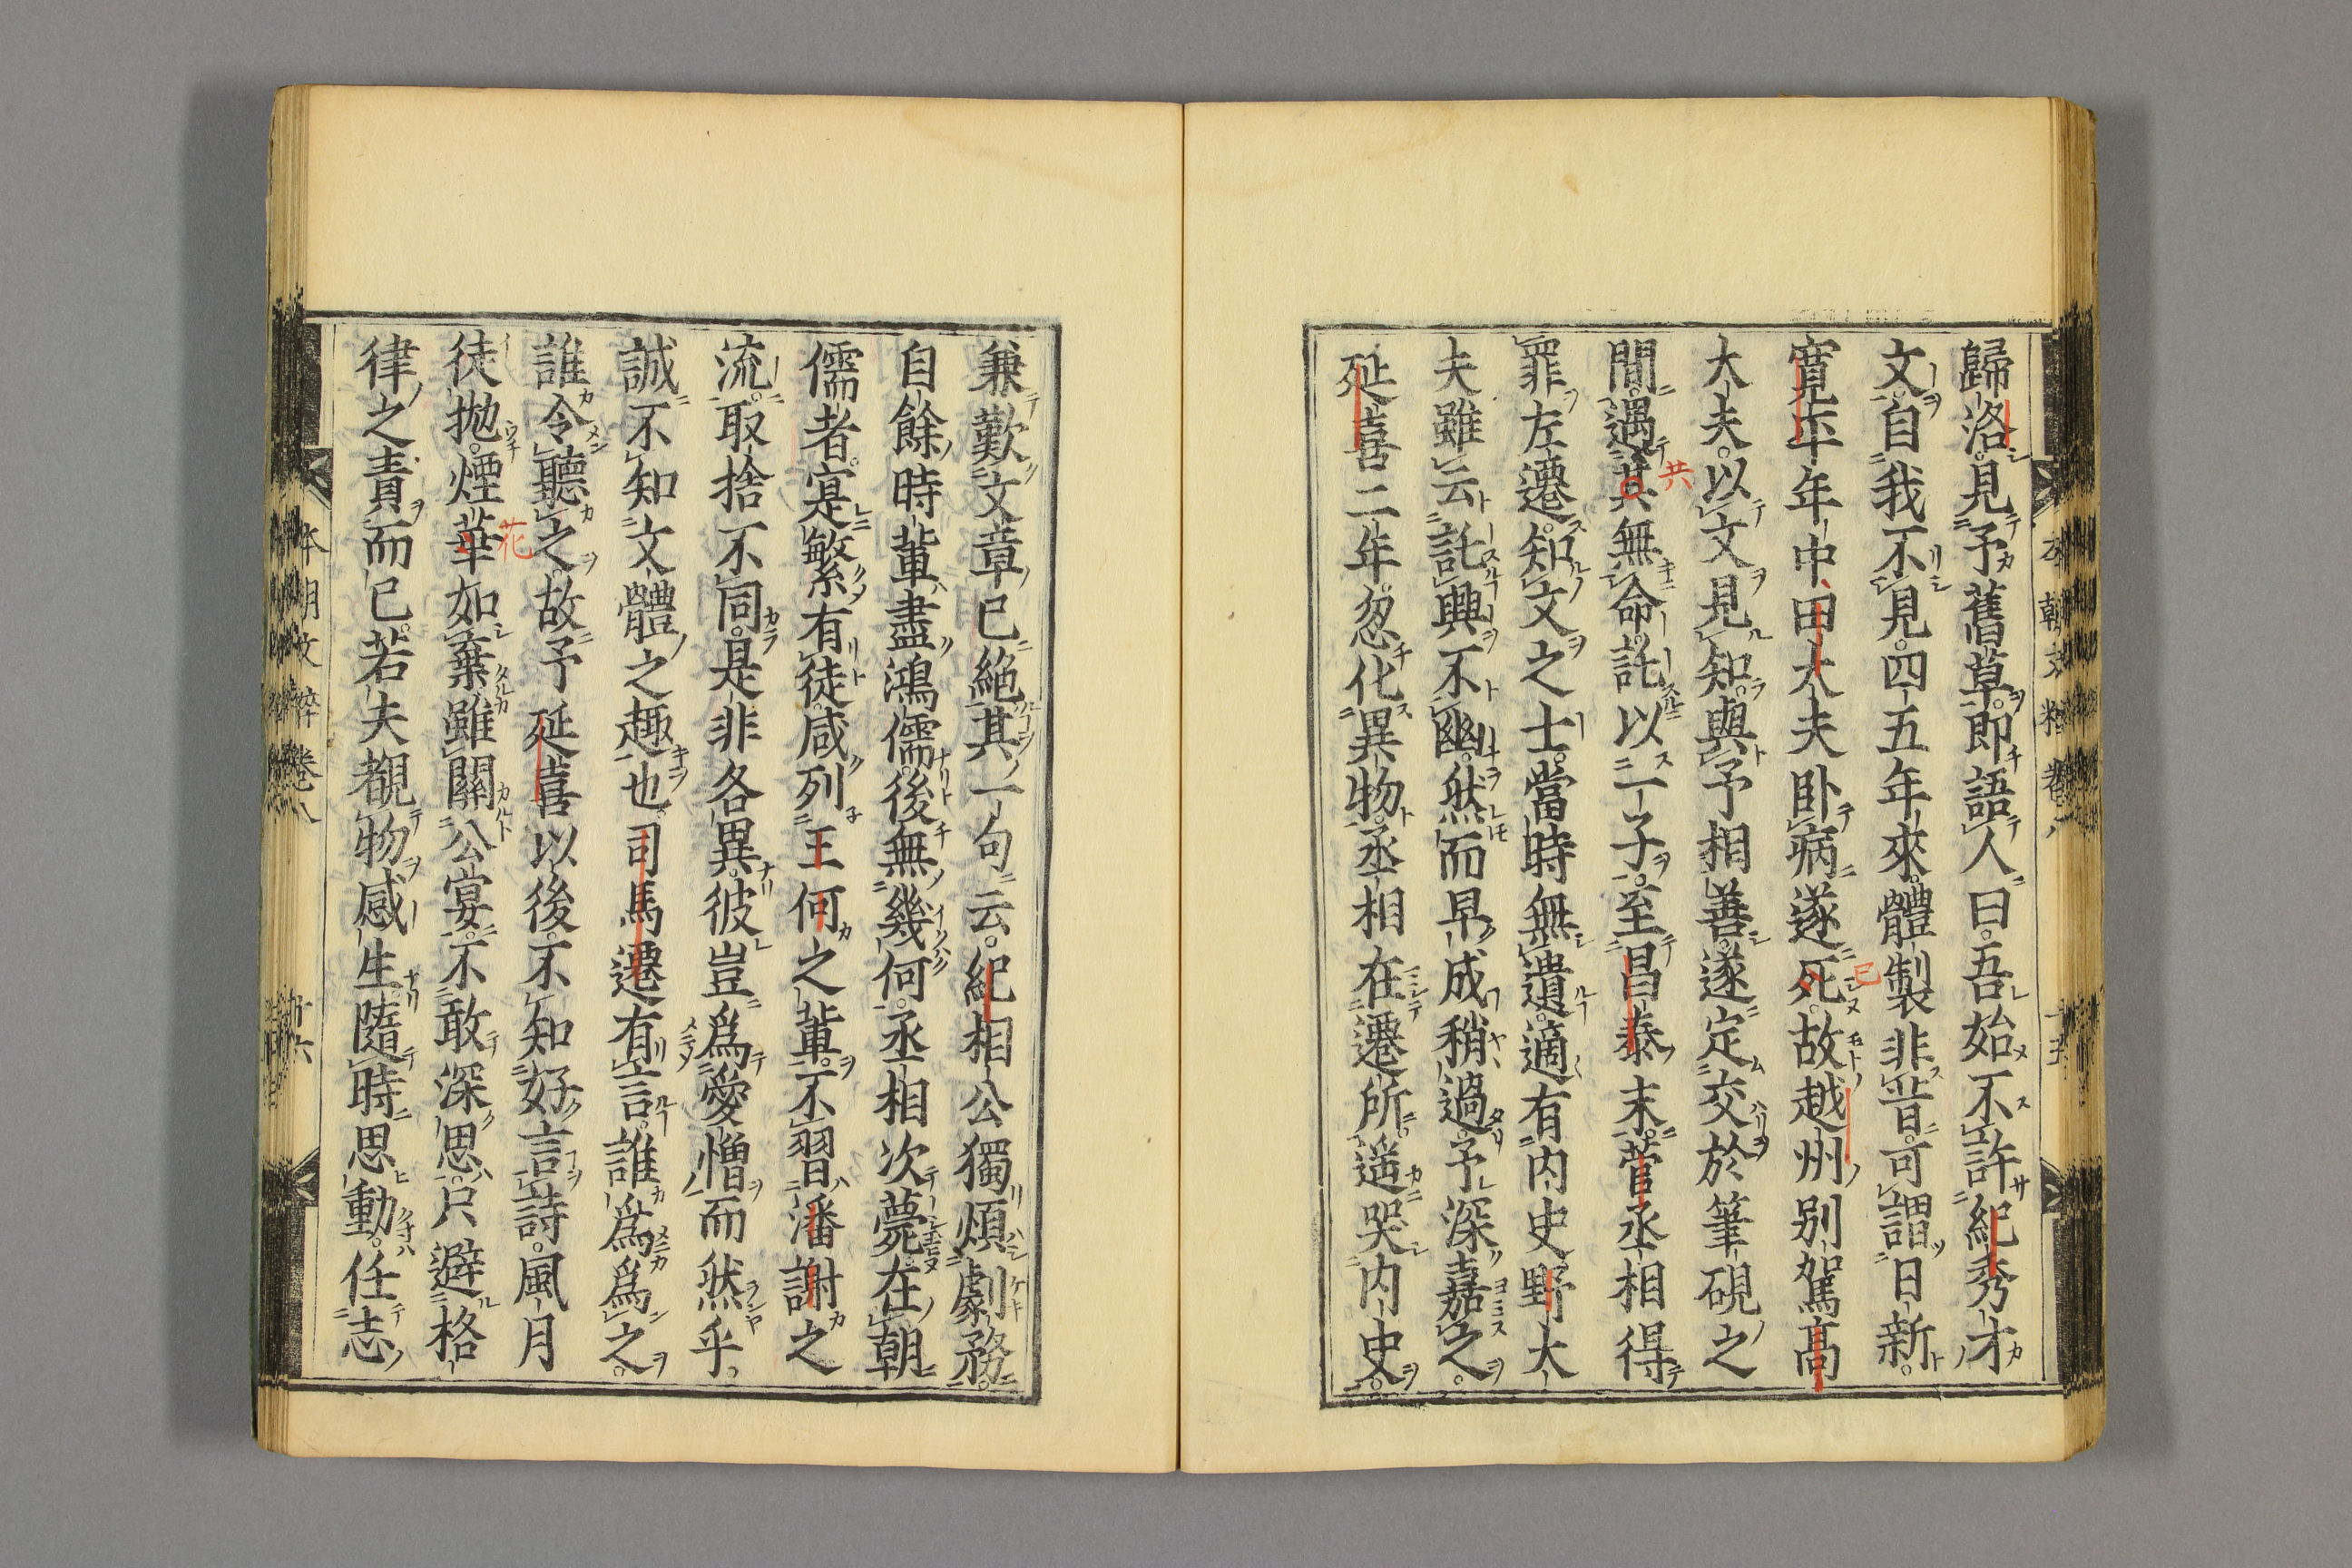 歸洛。見予舊草。即語人曰。吾始不許紀秀才
文。自我不見。四五年來。體製非昔。可謂日新。
寛平年中。田大夫卧病遂死。故越州別駕高
大夫。以文見知。與予相善。遂定交於筆硯之
間。遇其無命。託以一子。至昌泰末。菅丞相得
罪左遷。知文之士。當時無遺。適有内史野大
夫。雖云託興不幽。然而早成稍過。予深嘉之。
延喜二年。忽化異物。丞相在遷所。遥哭内史。
共
巳
本朝文粹卷八
十五
兼歎文章已絶。其一句云。紀相公獨煩劇務。
自餘時輩盡鴻儒。後無幾何。丞相次薨。在朝
儒者。寔繁有徒。咸列王何之輩。不習潘謝之
流。取捨不同。是非各異。彼豈爲愛憎而然乎。
誠不知文體之趣也。司馬遷有言。誰爲爲之。
誰令聽之。故予延喜以後。不知好言詩。風月
徒抛。煙華如棄。雖關公宴。不敢深思。只避格
律之責而已。若夫覩物感生。隨時思動。任志
花
本朝文粹卷八
十六